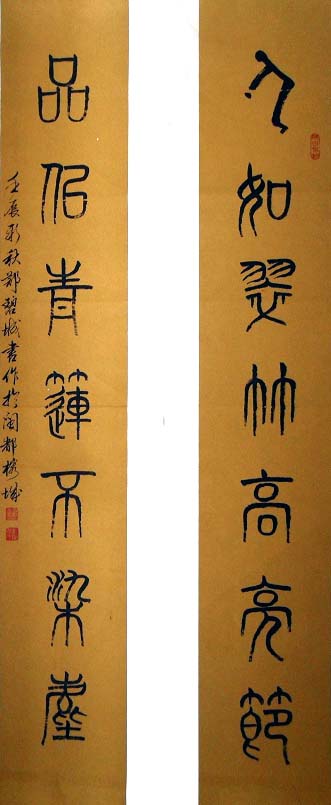 人如翠竹高亮節
品似青蓮不染塵
壬辰新秋鄭碧城書作於閩都榕城